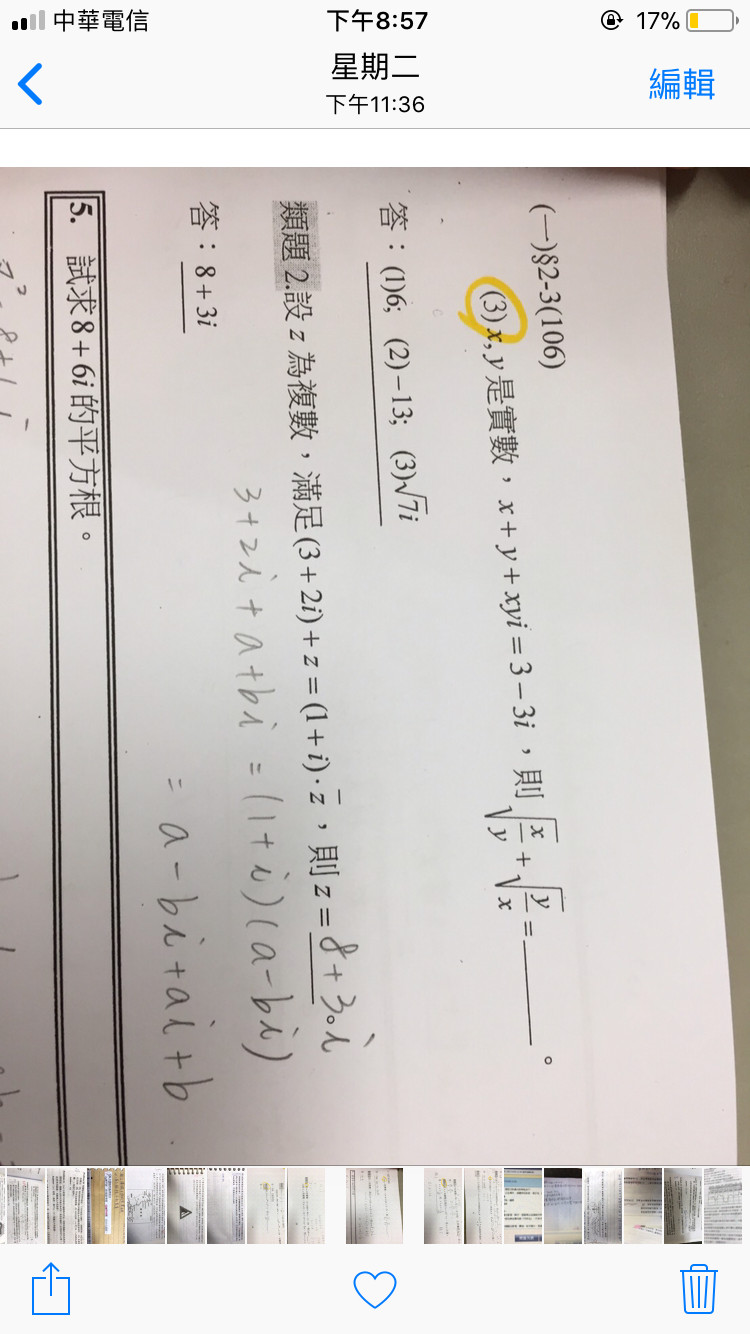 中華電信 下午8:57 17%
星期二
下午11:36
編輯
(一)§2-3(106)
(3) x, y 是實數，x + y + xyi = 3 − 3i，則 √(x/y) + √(y/x) = ______。
答：(1)6; (2)−13; (3)√7i
類題 2.設 z 為複數，滿足 (3 + 2i) + z = (1 + i)·z̄，則 z = 8+3i。
3+2i+a+bi = (1+i)(a-bi)
答：8 + 3i
= a-bi+ai+b
5. 試求 8 + 6i 的平方根。